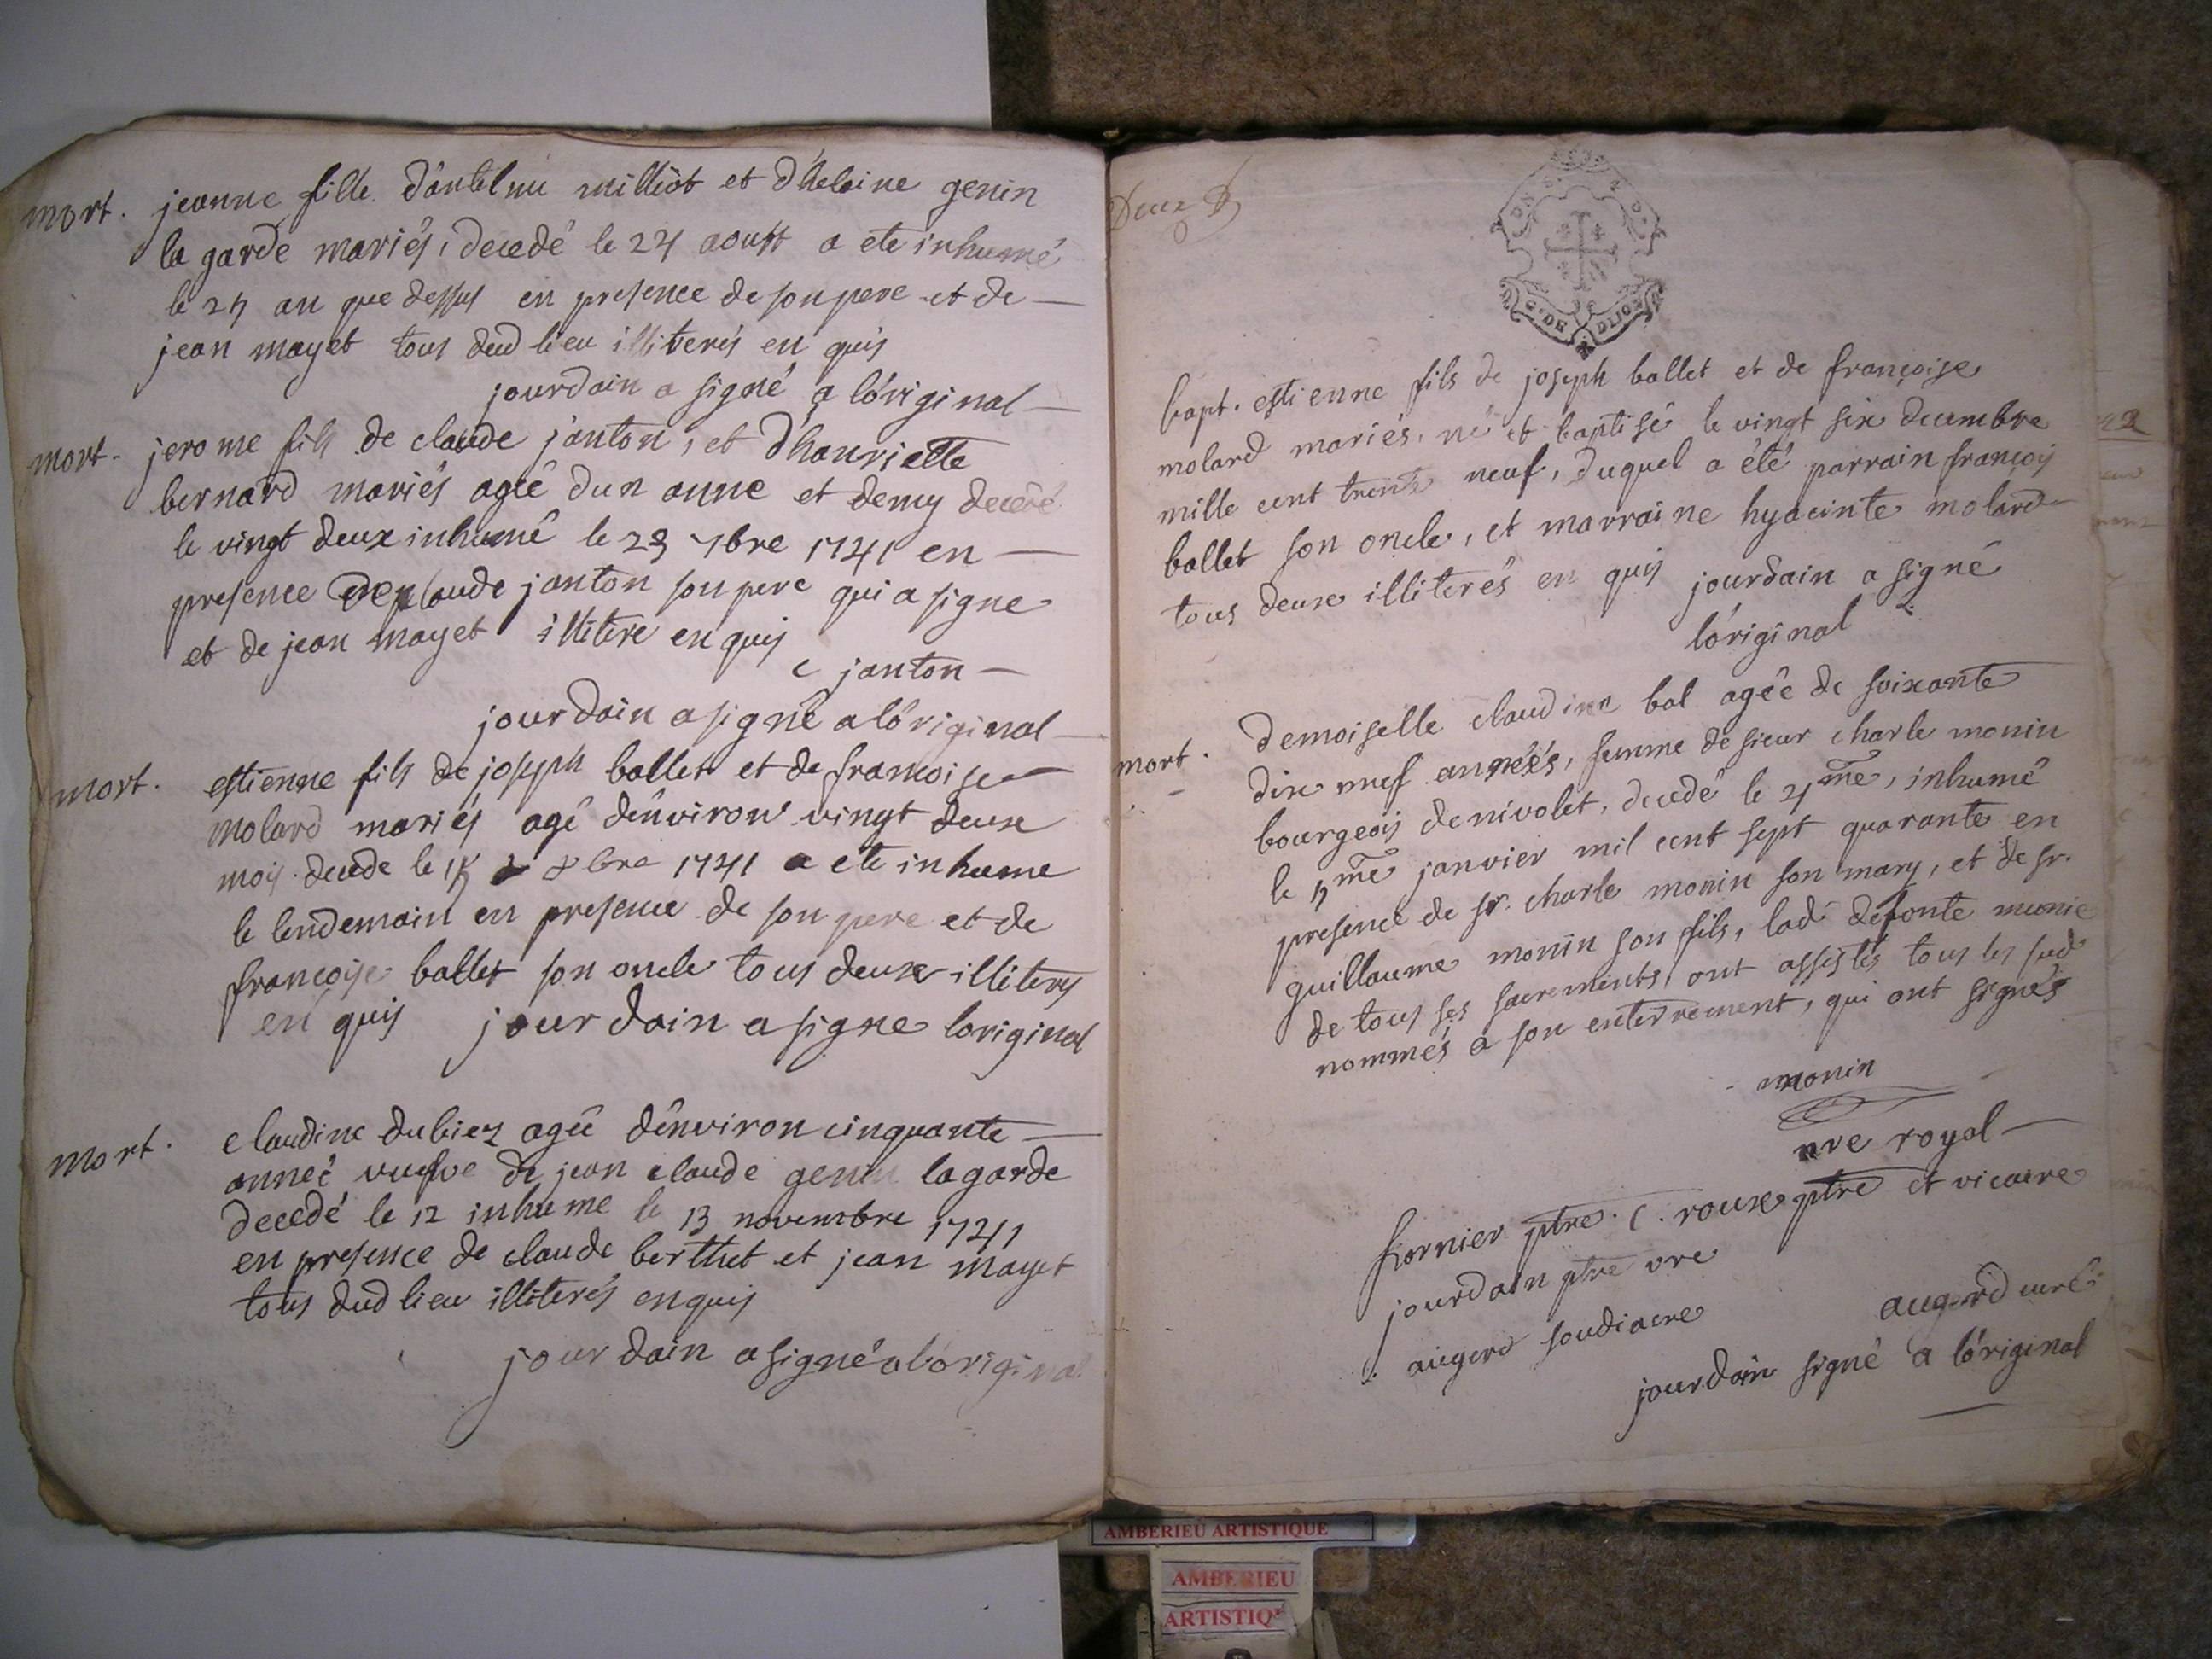 mort. jeanne fille d'antelme milliot et d'heleine genin
la garde mariés, decedé le 24 aoust a ete inhumé
le 25 an que dessus en presence de son pere et de
jean mayet tous dud lieu illiterés enquis
jourdain a signé a l'original
mort. jerome fils de claude janton, et d'hanriette
bernard mariés agée dun anne et demy decedé
le vingt deux inhumé le 23 7bre 1741 en
presence de claude janton son pere qui a signe
et de jean mayet illitere enquis
c janton
jourdain a signé a l'original
mort. estienne fils de joseph ballet et de francoise
molard mariés agé d'environ vingt deux
mois decede le 8bre 1741 a ete inhume
le lendemain en presence de son pere et de
françoise ballet son oncle tous deux illiterés
enquis jourdain a signe loriginal
mort. claudine dubiez agée d'environ cinquante
anneé veufve de jean claude genin lagarde
decedé le 12 inhume le 13 novembre 1741
en presence de claude berthet et jean mayet
tous dud lieu illiterés enquis
jourdain a signé a l'original
Deux
G. DE DIJON
bapt. estienne fils de joseph ballet et de françoise
molard mariés, né et baptisé le vingt six decembre
mille cent trente neuf, duquel a été parrain françois
ballet son oncle, et marraine hyacinte molard
tous deux illiterés en quis jourdain a signé
l'original
mort. demoiselle claudine bal agée de soixante
dix neuf anneés, femme de sieur charle monin
bourgeois de nivolet, decedé le me, inhumé
le me janvier mil cent sept quarante en
presence de sr. charle monin son mary, et de sr.
guillaume monin son fils, lad defonte munie
de tous ses sacrements, ont assistés tous les sud
nommés a son enterrement, qui ont signés
monin
nre royal
fornier ptre. c. roux ptre et vicaire
jourdain ptre vre
augerd soudiacre augerd curé
jourdain signé a l'original
AMBERIEU ARTISTIQUE
AMBERIEU
ARTISTIQ